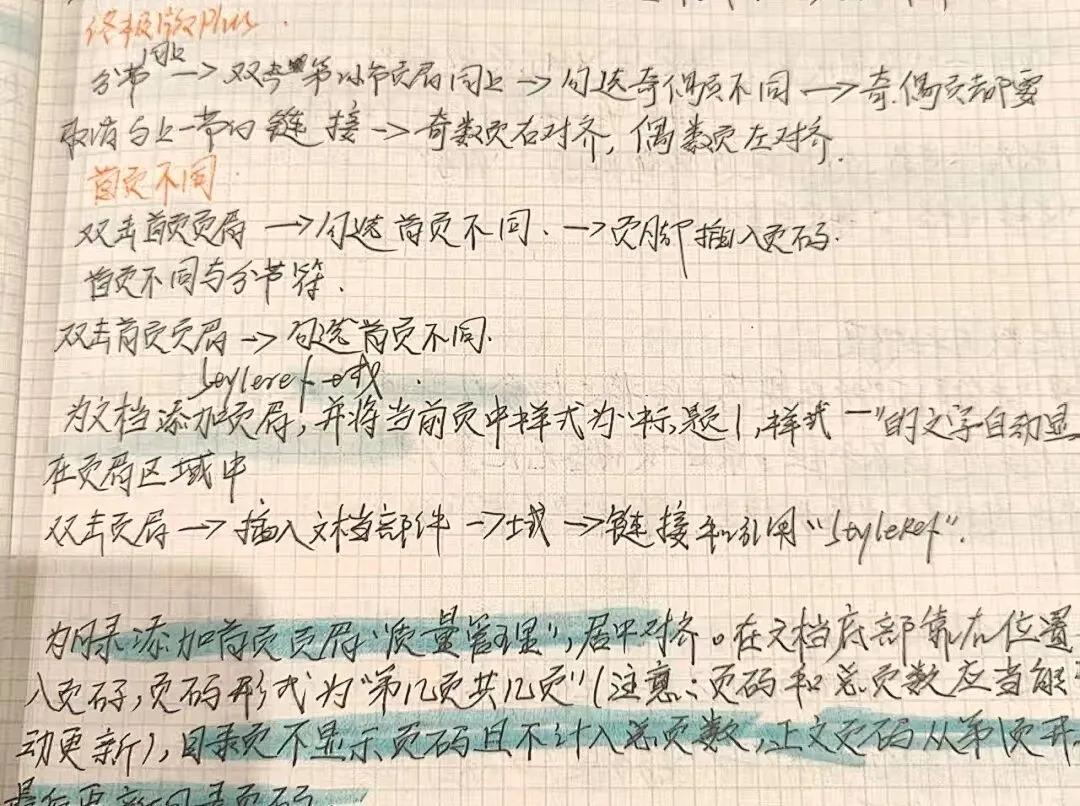 终极版Plus.
同上
分节 → 双击第2节页眉同上 → 勾选奇偶页不同 → 奇、偶页都要
取消与上一节的链接 → 奇数页右对齐, 偶数页左对齐.
首页不同.
双击首页页眉 → 勾选首页不同. → 页脚插入页码.
首页不同与分节符.
双击首页页眉 → 勾选首页不同.
Styleref 域.
为文档添加页眉, 并将当前页中样式为"标题1, 样式一"的文字自动显
在页眉区域中
双击页眉 → 插入文档部件 → 域 → 链接和引用 "StyleRef".
为目录添加首页页眉"质量管理", 居中对齐。在文档底部靠右位置
入页码, 页码形式为"第几页共几页" (注意: 页码和总页数应当能
动更新), 目录页不显示页码且不计入总页数, 正文页码从第1页开
最后更新目录页码